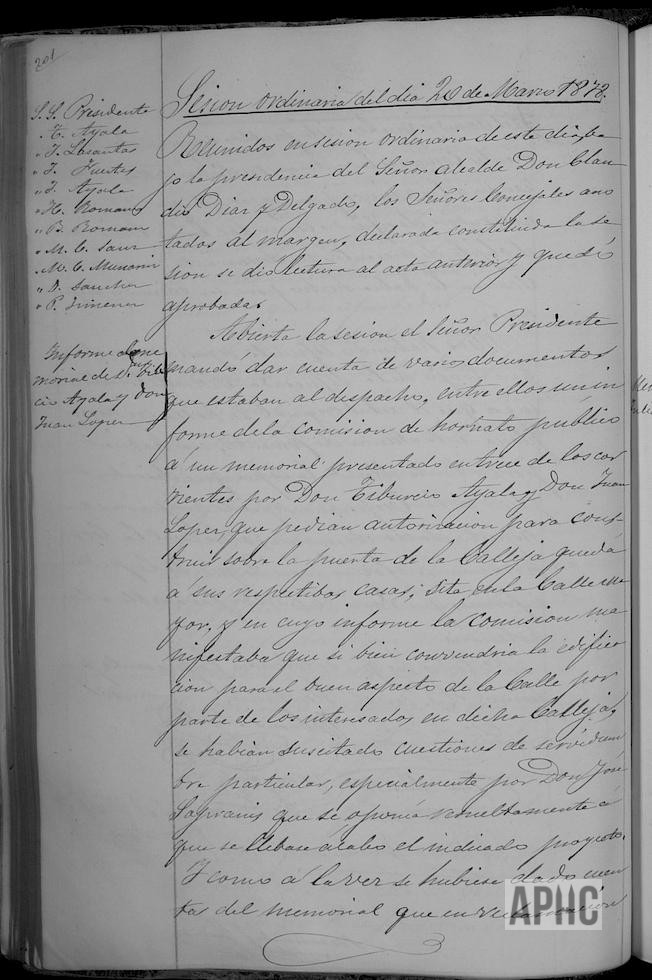 201
S. S. Presidente
" T. Ayala
" J. Losantos
" J. Fuertes
" J. Ayala
" H. Romano
" B. Romano
" M. C. Sanz
" M. C. Munarriz
" D. Sanchez
" P. Jimenez
Informe al me
morial de D. Tibur
cio Ayala y Don
Juan Lopez
Sesion ordinaria del dia 26 de Marzo 1872.
Reunidos en sesion ordinaria de este dia, ba
jo la presidencia del Señor alcalde Don Clau
dio Diaz y Delgado, los Señores Concejales ano
tados al margen, declarada constituida la se
sion se dió lectura al acta anterior y quedó
aprobada.
Abierta la sesion el Señor Presidente
mandó dar cuenta de varios documentos
que estaban al despacho, entre ellos un in
forme de la comision de hornato público
á un memorial presentado en trece de los cor
rientes por Don Tiburcio Ayala y Don Juan
Lopez, que pedian autorizacion para cons-
truir sobre la puerta de la Calleja que dá
á sus respectibas casas, sita en la Calle ma
yor, y en cuyo informe la comision ma
nifestaba que si bien convendria la edifica
cion para el buen aspecto de la Calle por
parte de los interesados en dicha Calleja,
se habian suscitado cuestiones de servidum
bre particular, especialmente por Don José
Sopranis que se oponia resueltamente á
que se llebase á cabo el indicado proyecto.
Y como á la vez se hubiese dado cuen
ta del memorial que en
APHC